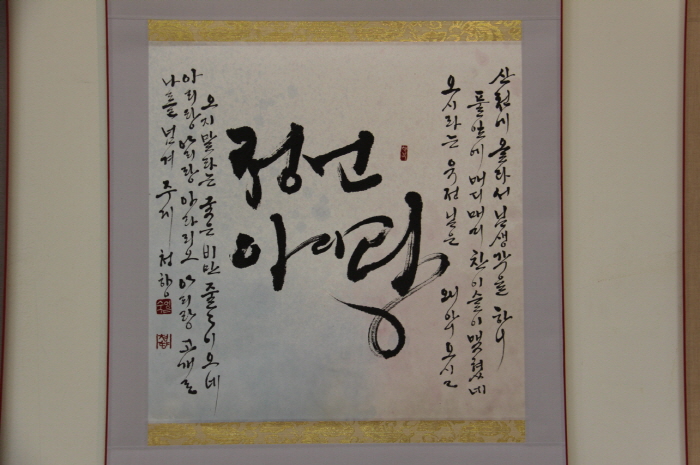 산천에 올라서 님생각을 하니
풀잎에 매디매디 찬이슬이 맺혔네
오시라는 욱전님은 왜 아니 오시고
정선
아리랑
오지말라는 궂은 비만 줄줄이 오네
아리랑 아리랑 아라리오 아리랑 고개로
나를 넘겨 주게 청향